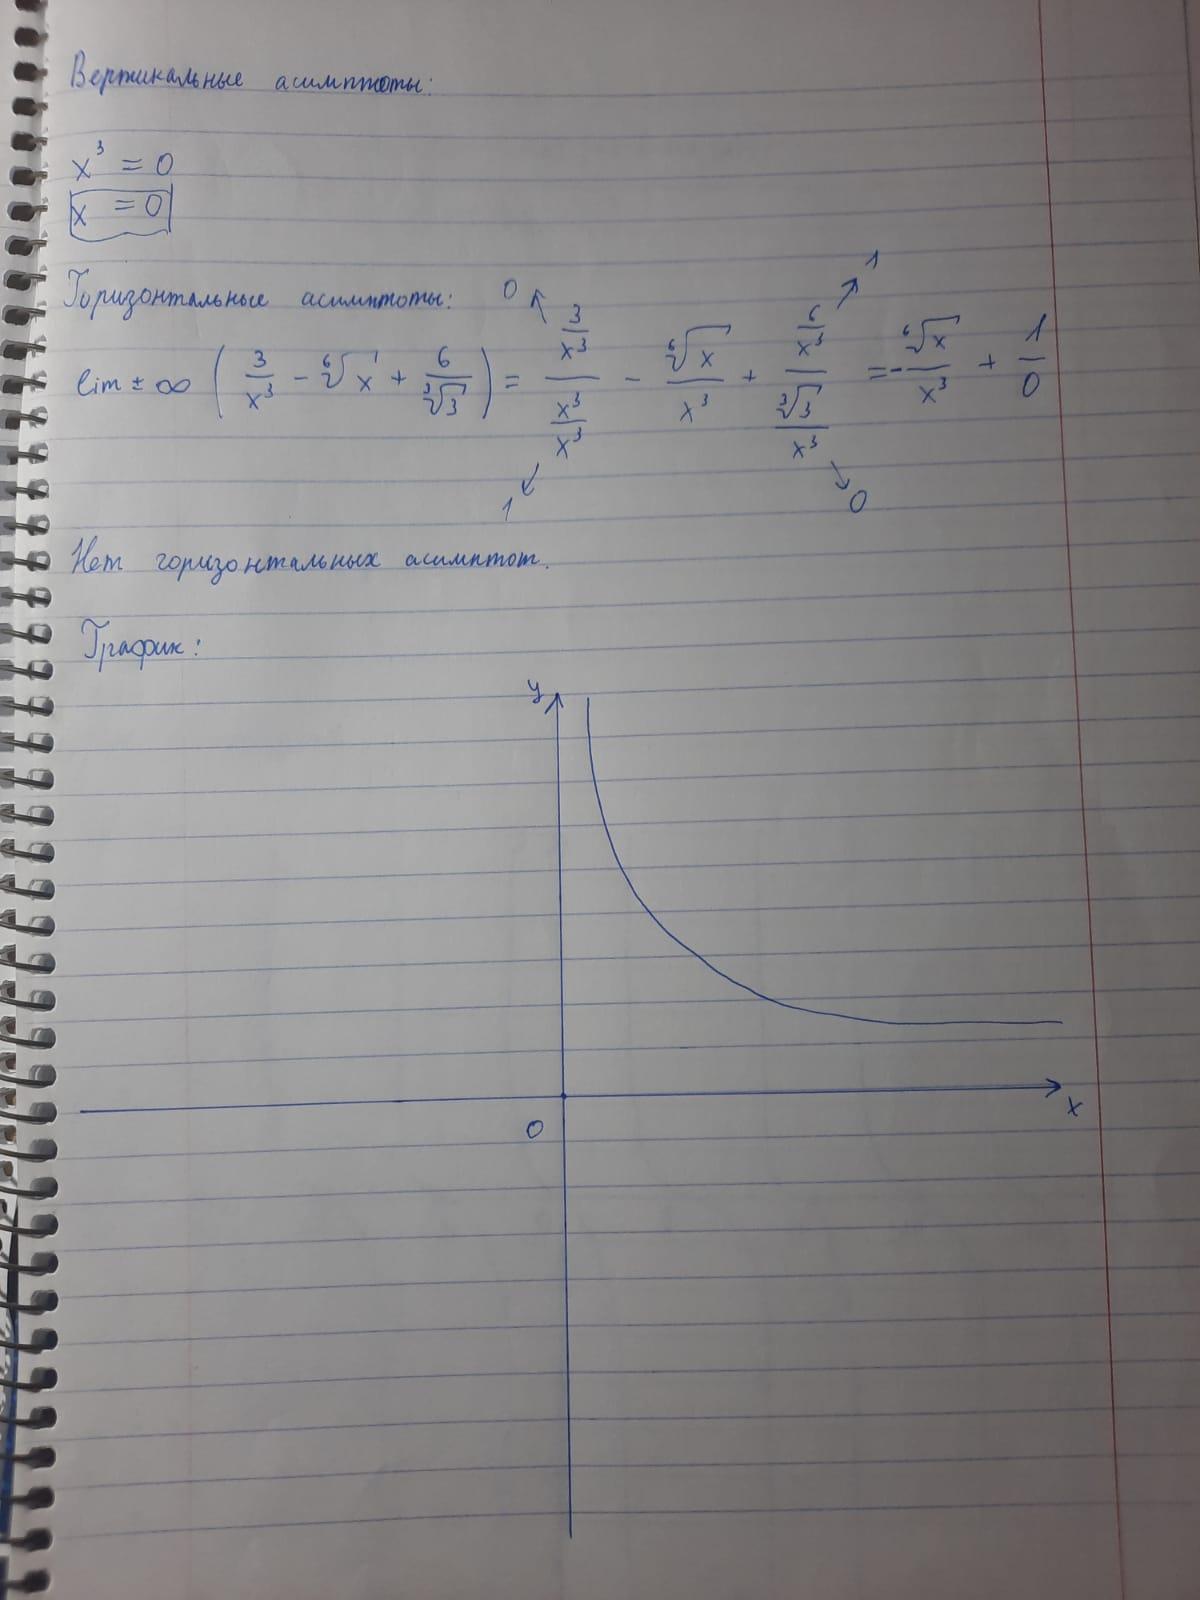 Вертикальные асимптоты:
x³ = 0
x = 0
Горизонтальные асимптоты:
lim ± ∞ (3/x³ - ⁶√x + 6/³√3) = (3/x³ → 0)/(x³/x³ → 1) - ⁶√x/x³ + (6/x³ → 1)/(³√3/x³ → 0) = - ⁶√x/x³ + 1/0
Нет горизонтальных асимптот.
График:
y
x
0